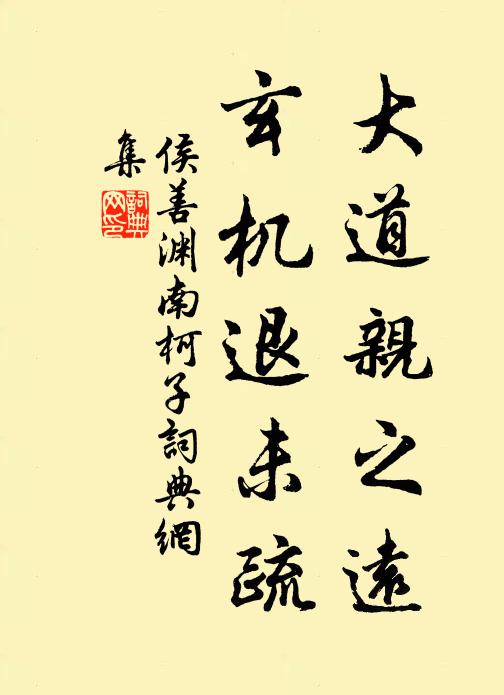 大道親之遠
玄机退未疏
侯善渊南柯子詞典網
集
詞典网印